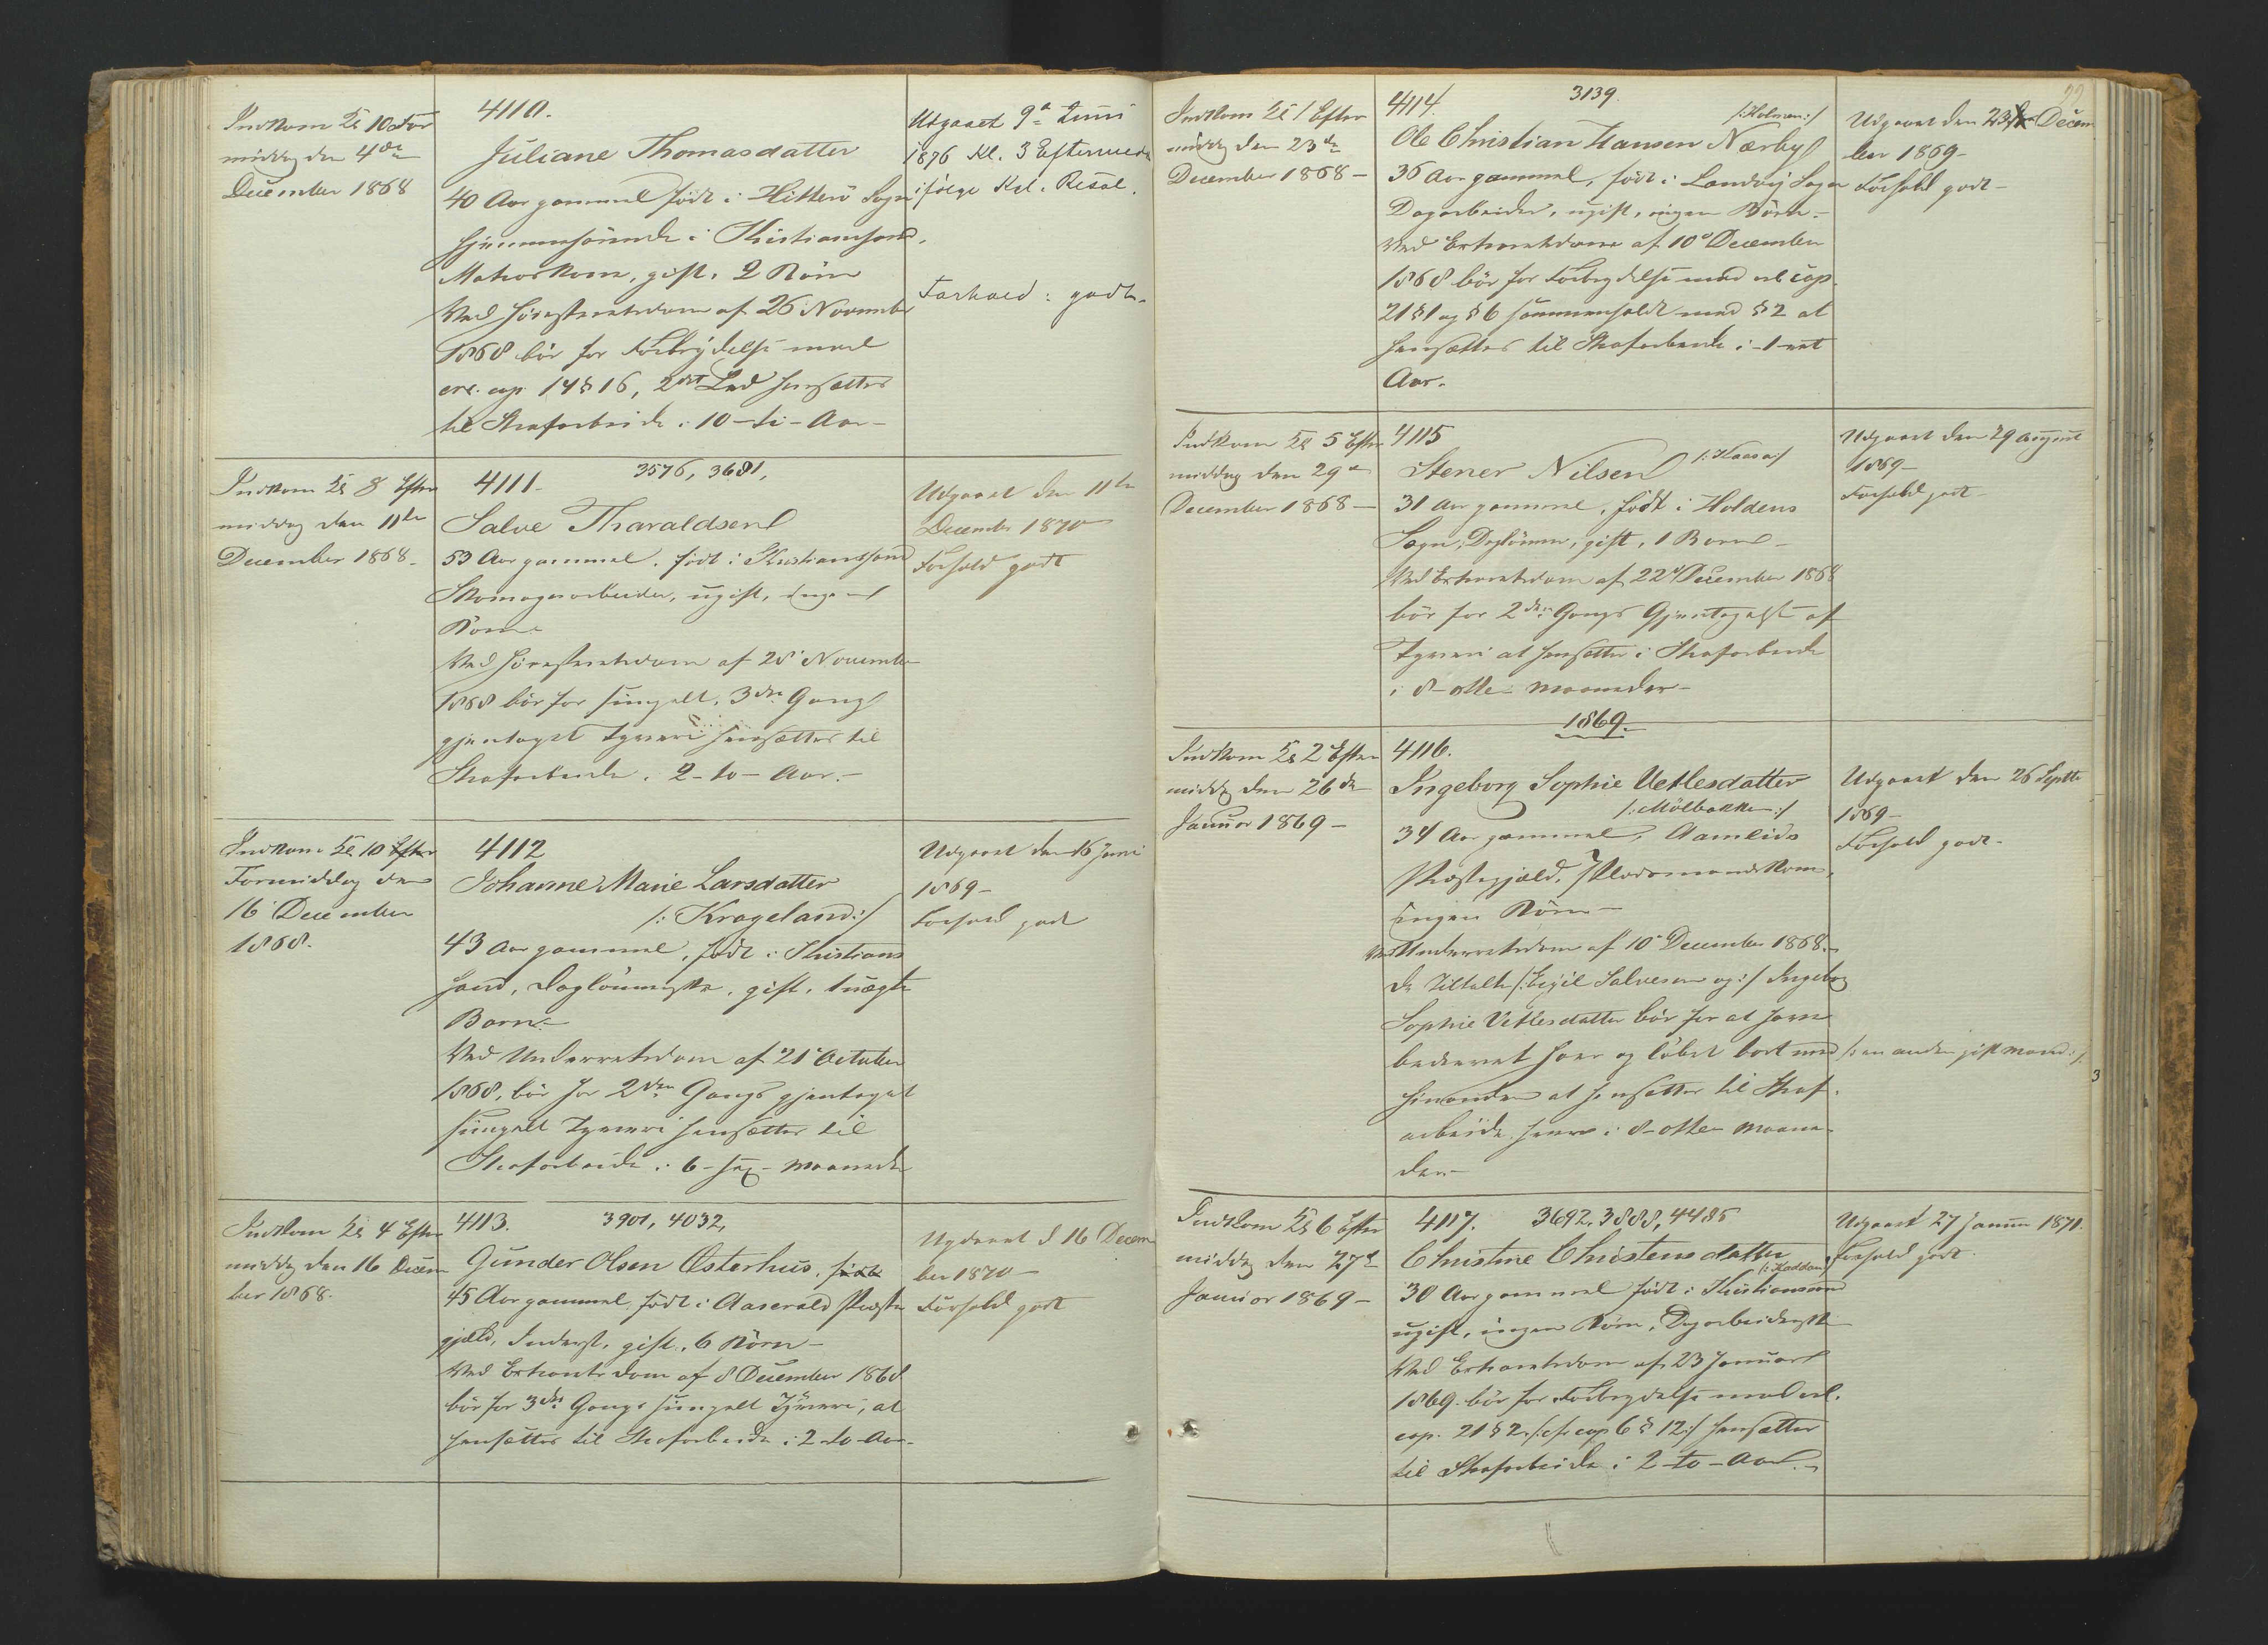 4110.
Indkom Kl 10 For
middag den 4de
December 1868
Juliane Thomasdatter
40 Aar gammel født i Hitterö Sogn
hjemmehörende i Christianssand,
Matroskone, gift, 2 Börn
Ved Höiesteretsdom af 26 November
1868 bör for Forbrydelse mod
crl. cap 14 § 16, 2det Led hensættes
til Strafarbeide i 10 - ti - Aar -
Udgaaet 9de Juni
1876 Kl. 3 Eftermidd
ifölge Kgl. Resol.
Forhold: godt.
4111. 3576, 3681,
Indkom Kl 8 Efter
middag den 11te
December 1868.
Salve Tharaldsen
53 Aar gammel, født i Christianssand
Skomagerarbeider, ugift, ingen
Börn
Ved Höiesteretsdom af 28 November
1868 bör for simpelt, 3die Gang
gjentaget Tyveri hensættes til
Strafarbeide i 2 - to - Aar. -
Udgaaet den 11te
December 1870
Forhold godt
4112
Indkom Kl 10 Efter
Formiddag den
16 December
1868.
Johanne Marie Larsdatter
/: Krageland :/
43 Aar gammel, født i Christians
sand, Daglönnerske, gift, 1 uægte
Barn. -
Ved Underretsdom af 21 October
1868, bör for 2den Gangs gjentaget
simpelt Tyveri hensættes til
Strafarbeide i 6 - sex - Maaneder
Udgaaet den 16 Juni
1869 -
Forhold godt
4113. 3901, 4032,
Indkom Kl 4 Efter
middag den 16 Decem
ber 1868.
Gunder Olsen Österhus, født
45 Aar gammel, født i Aaserald Præste
gjæld, Inderst, gift, 6 Börn -
Ved Extraretsdom af 8 December 1868
bör for 3die Gangs simpelt Tyveri, at
hensættes til Strafarbeide i 2 - to - Aar -
Udgaaet d 16 Decem
ber 1870 -
Forhold godt
99
4114. 3139.
Indkom Kl 1 Efter
middag den 23de
December 1868 -
/: Holmen :/
Ole Christian Hansen Nærby
36 Aar gammel, født i Landvig Sogn
Dagarbeider, ugift, ingen Börn -
Ved Extraretsdom af 10de December
1868 bör for Forbrydelse mod crl cap.
21 § 1 og § 6 sammenholdt med § 2 at
hensættes til Strafarbeide i - 1 - eet
Aar.
Udgaaet den 23 Decem
ber 1869 -
Forhold godt -
4115
Indkom Kl 5 Efter
middag den 29de
December 1868 -
Stener Nilsen /: Kaasa :/
31 Aar gammel, født i Holdens
Sogn, Daglönner, gift, 1 Barn -
Ved Extraretsdom af 22de December 1868
bör for 2den Gangs Gjentagelse af
Tyveri at hensættes i Strafarbeide
i 8 - otte - Maaneder -
Udgaaet den 29 August
1869 -
Forhold godt -
1869.
4116.
Indkom Kl 2 Efter
middag den 26de
Januar 1869 -
Ingeborg Sophie Vetlesdatter
/: Mölbakken :/
34 Aar gammel, Aamlids
Præstegjæld, Pladsmandskone,
ingen Börn -
Ved Underretsdom af 10 December 1868.
De Tiltalte /: Eigil Salvesen og :/ Ingeborg
Sophie Vetlesdatter bör for at have
bedrevet Hoer og löbet bort med /: en anden gift Mand :/
hinanden at hensættes til Straf-
arbeide hver i 8 - otte - Maane-
der. -
Udgaaet den 26 Septbr
1869 -
Forhold godt -
4117. 3692, 3888, 4485
Indkom Kl 6 Efter
middag den 27de
Januar 1869 -
Christine Christensdatter
/: Kaddan :/
30 Aar gammel født i Christianssand
ugift, ingen Börn, Dagarbeiderske
Ved Extraretsdom af 23 Januar
1869 bör for Forbrydelse mod crl.
cap. 21 § 2, /: cfr cap 6 § 12 :/ hensættes
til Strafarbeide i 2 - to - Aar. -
Udgaaet 27 Januar 1871.
Forhold godt.
3